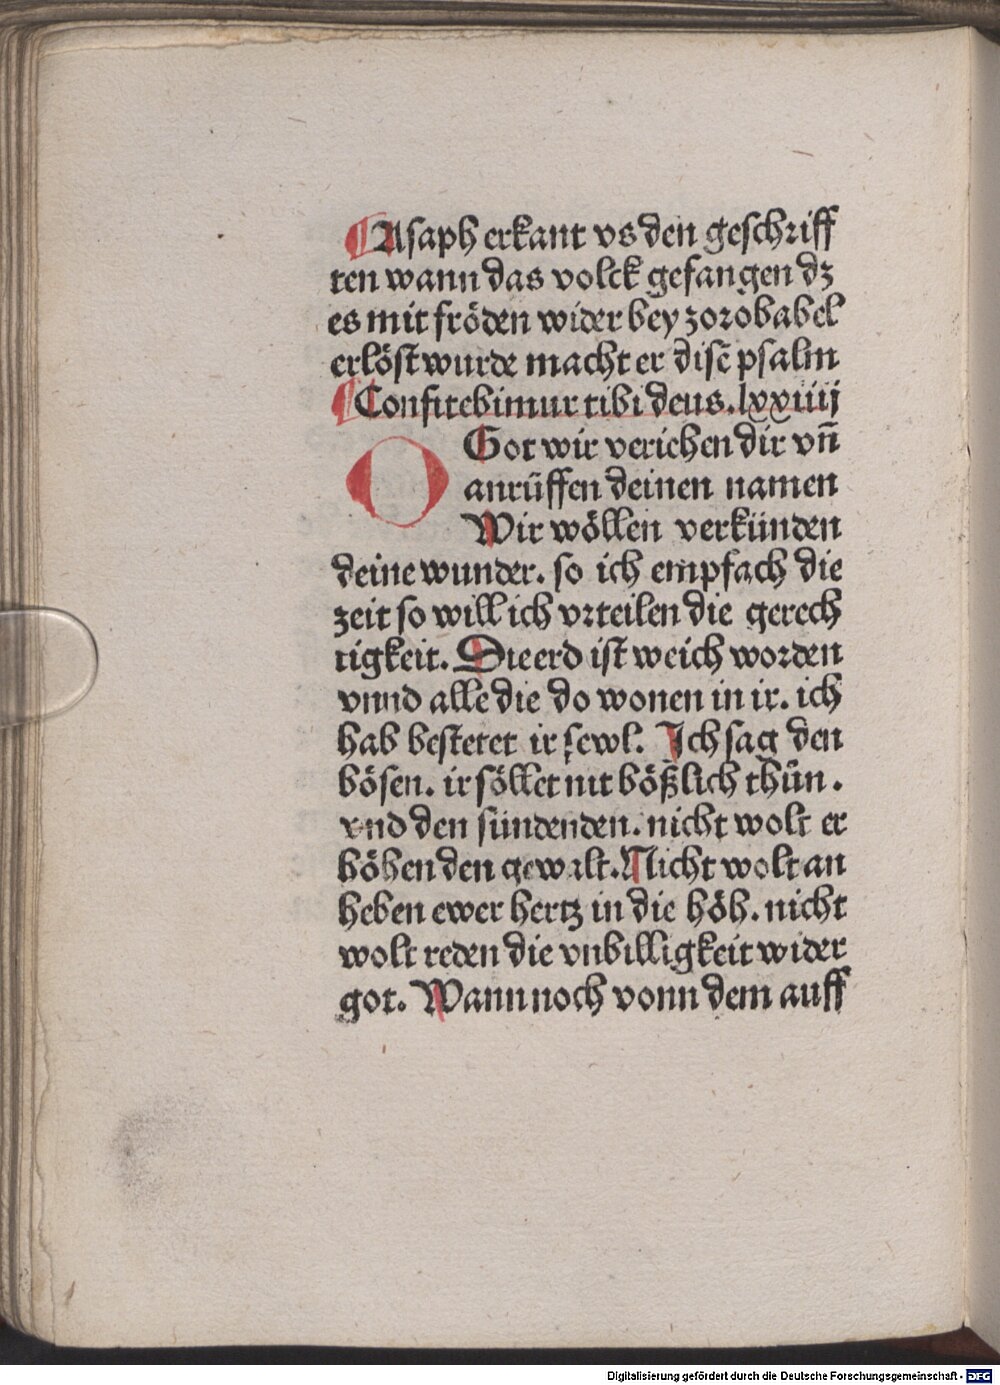 ¶ Asaph erkant vs den geschriff
ten wann das volck gefangen dz
es mit fröden wider bey zorobabel
erlöst wurde macht er disē psalm
¶ Confitebimur tibi deus. lxxiiij
O Got wir veriehen dir vñ
anrůffen deinen namen
Wir wöllen verkünden
deine wunder. so ich empfach die
zeit so will ich vrteilen die gerech
tigkeit. Die erd ist weich worden
vnnd alle die do wonen in ir. ich
hab bestetet ir sewl. Ich sag den
bösen. ir söllet nit bößlich thůn.
vnd den sündenden. nicht wolt er
höhen den gewalt. Nicht wolt an
heben ewer hertz in die höh. nicht
wolt reden die vnbilligkeit wider
got. Wann noch vonn dem auff
Digitalisierung gefördert durch die Deutsche Forschungsgemeinschaft - DFG